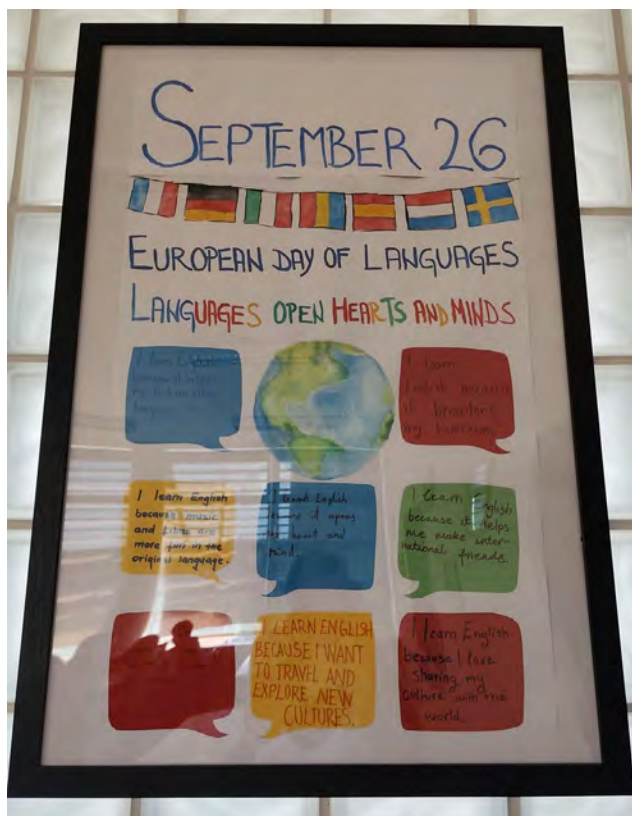 SEPTEMBER 26
EUROPEAN DAY OF LANGUAGES
LANGUAGES OPEN HEARTS AND MINDS
I learn English
because it helps
me
I learn
English because
it broadens
my horizons.
I learn English
because music
and films are
more fun in the
original language.
English
it opens
heart and
mind.
I learn English
because it helps
me make inter-
national friends.
I LEARN ENGLISH
BECAUSE I WANT
TO TRAVEL AND
EXPLORE NEW
CULTURES.
I learn English
because I love
sharing my
culture with the
world.